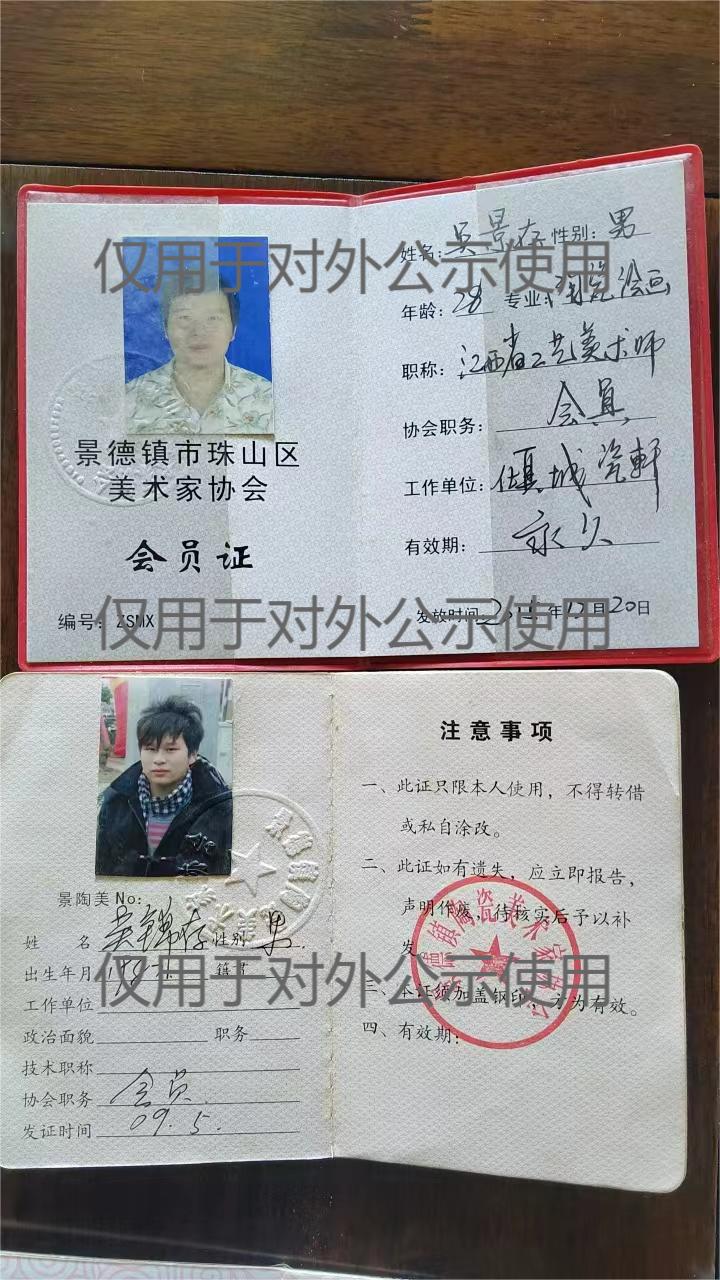 仅用于对外公示使用
景德镇市珠山区
美术家协会
会员证
编号：ZSMX
姓名：吴景存 性别：男
年龄：28 专业：陶瓷绘画
职称：江西省工艺美术师
协会职务：会员
工作单位：倾城瓷軒
有效期：永久
发放时间 年12月20日
仅用于对外公示使用
景陶美No：
姓 名 吴锦存 性别 男
出生年月 籍贯
工作单位
政治面貌 职务
技术职称
协会职务 会员
发证时间 09.5.
注意事项
一、此证只限本人使用，不得转借
或私自涂改。
二、此证如有遗失，应立即报告，
声明作废，待核实后予以补
发。
三、本证须加盖钢印，方为有效。
四、有效期：
仅用于对外公示使用